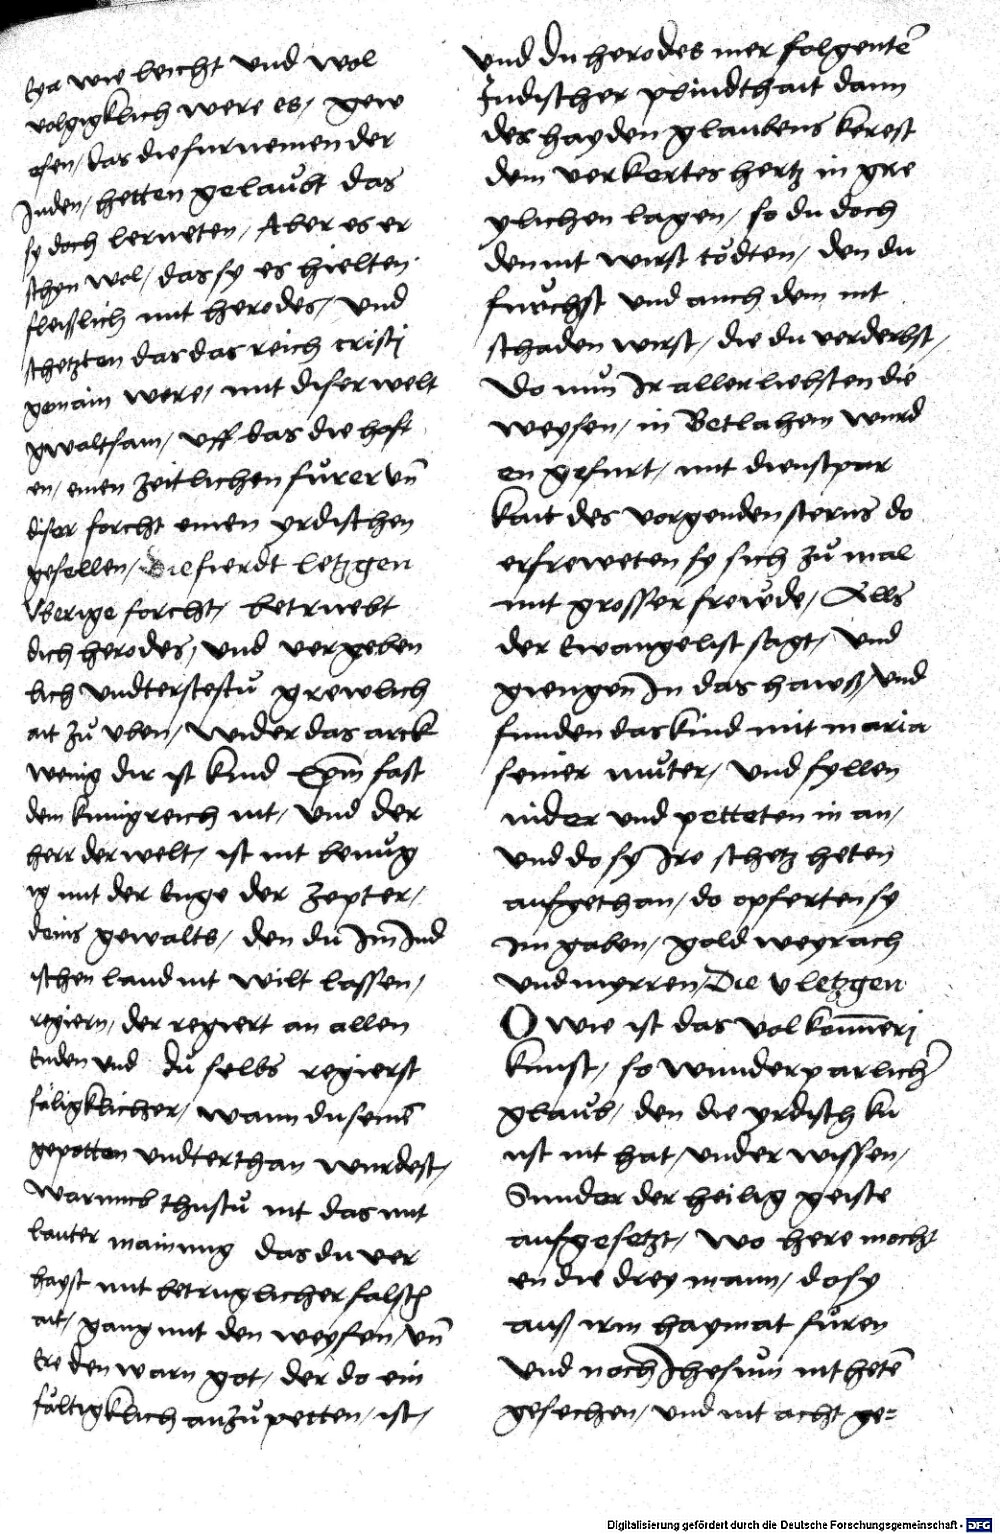 Eya wie leicht und wol
volgigklich were es/ gew
esen/ das die furnemen der
Juden/ hetten gelaubt das
sy doch lerneten/ Aber es er
schyn wol/ das sy es hielten
fleißlich mit herodes/ und
schetzten das das reich cristi
gemain were/ mit diser welt
gwaltsam/ uff das die hoft
en/ einen zeitlichen fůrer vn̄
diser forcht einen yrdischen
gesellen/ Die fierdt letzgen
Uberige forcht/ betruebt
dich herodes/ und vergeben
lich undterstestů grewlich
ait zů uben/ wider das arck
wenig dir ist kind Xp̄m fast
dem kunigreich nit/ und der
herr der welt/ ist nit benůg
ig mit der Enge der Zepter/
deins gewalts/ den du Im Jud
ischen land nit wilt lassen/
regiern/ der regiert an allen
Enden und dů selbs regierst
säligklicher/ wann du seinē
gepotten undterthan wurdest/
warumb thustů nit das mit
lauter mainung das du ver
hayst mit betruglicher falsch
ait/ gang mit den weysen/ vn̄
Ere den warn got/ der do ein
fältigklich anzů petten/ ist/
und du herodes mer folgentē
Judischer plindthait dann
des hayden glaubens kerest
dem verkertes hertz in gre
ylichen lagen/ so du doch
den nit wirst tödten/ den du
furchst und auch dem nit
schaden wirst/ die du verderbst/
Do nůn Ir aller liebsten die
weysen/ in Betlahem wurd
en gefurt/ mit dienstpar
kait des vorgenden sterns do
erfreweten sy sich zů mal
mit grosser frewde/ Alls
der Ewangelist sagt/ und
giengen In das hawß/ und
funden das kind mit maria
seiner můter/ und fyllen
nider und petteten in an/
und do sy Ire schetz heten
aufgethan/ do opferten sy
im gaben/ gold weyrach
und myrren/ Die V letzgen
O wie ist das volkom̄eri
kunst/ so wunderparlichr̄
glaub/ den die yrdisch ku
nst nit hat/ underwissen/
Sunder der heilig geiste
aufgesetzt/ wo here mocht
en die drey mann/ do sy
auß irm haymat fůren
und noch Jhesum nit hetē
gesechen/ und nit acht ge=
Digitalisierung gefördert durch die Deutsche Forschungsgemeinschaft - DFG